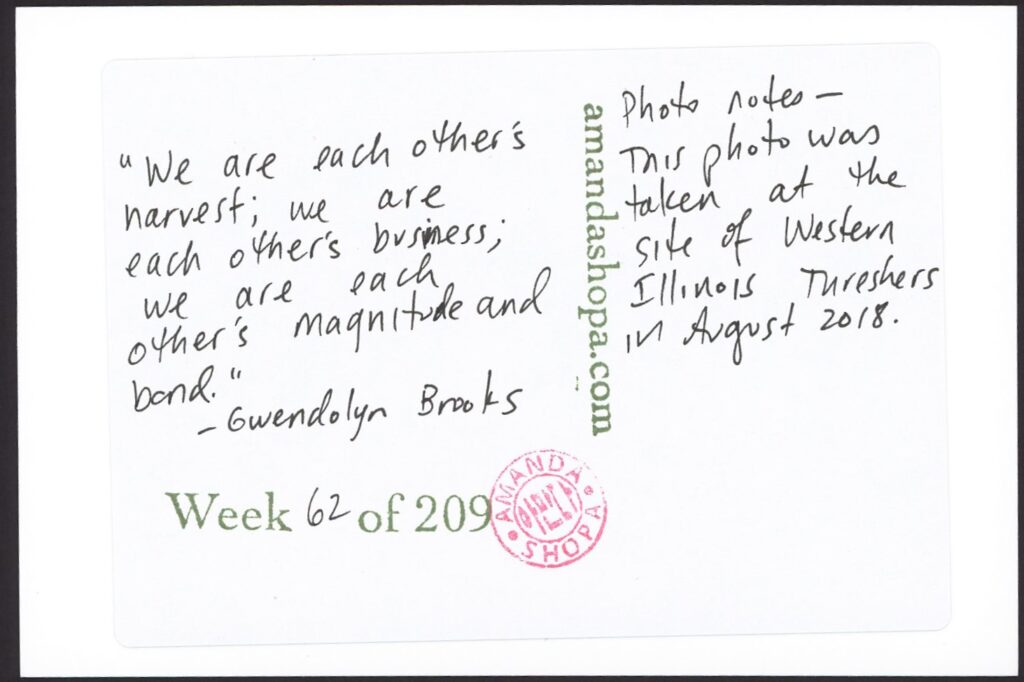 "We are each other's
harvest; we are
each other's business;
we are each
other's magnitude and
bond."
- Gwendolyn Brooks
Week 62 of 209
amandashopa.com
Photo notes -
This photo was
taken at the
site of Western
Illinois Threshers
in August 2018.
AMANDA
SHOPA